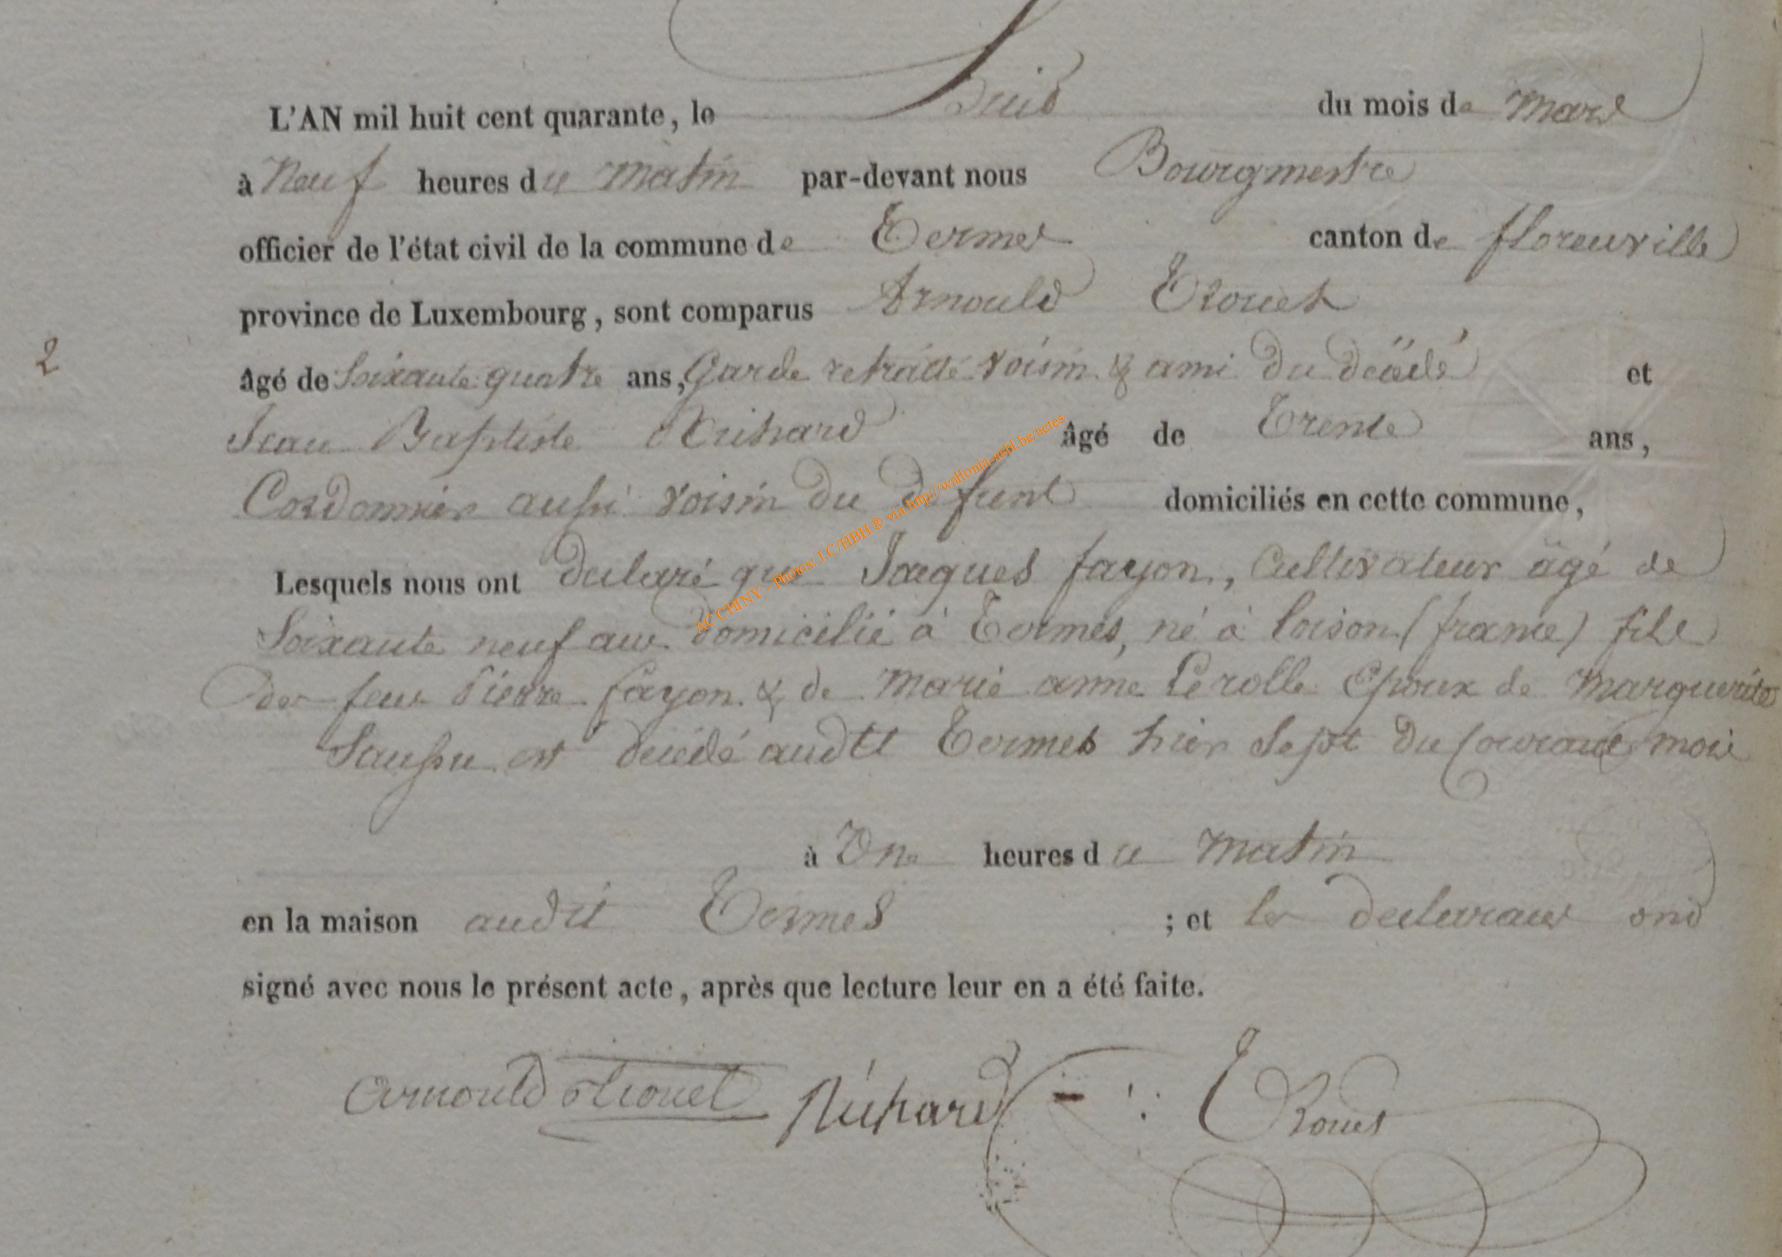 L'AN mil huit cent quarante, le huit du mois de Mars
à Neuf heures du Matin par-devant nous Bourgmestre
officier de l'état civil de la commune de Termes canton de florenville
province de Luxembourg, sont comparus Arnould Trouet
2
âgé de Soixante quatre ans, Garde retraité voisin & ami du décédé et
Jean Baptiste Richard âgé de Trente ans,
Cordonnier aussi voisin du défunt domiciliés en cette commune,
Lesquels nous ont déclaré que Jacques fayon, Cultivateur âgé de
Soixante neuf ans domicilié à Termes, né à loison (france) fils
de feu Pierre fayon & de Marie anne Lerolle Epoux de Marguerite
est décédé audit Termes hier Sept du Courant mois
à Une heures du Matin
en la maison audit Termes ; et les déclarans ont
signé avec nous le présent acte, après que lecture leur en a été faite.
Arnould trouet Richard Trouet
AC CHINY - Photos J.C/HBH & via http://wallonia-asbl.be/actes